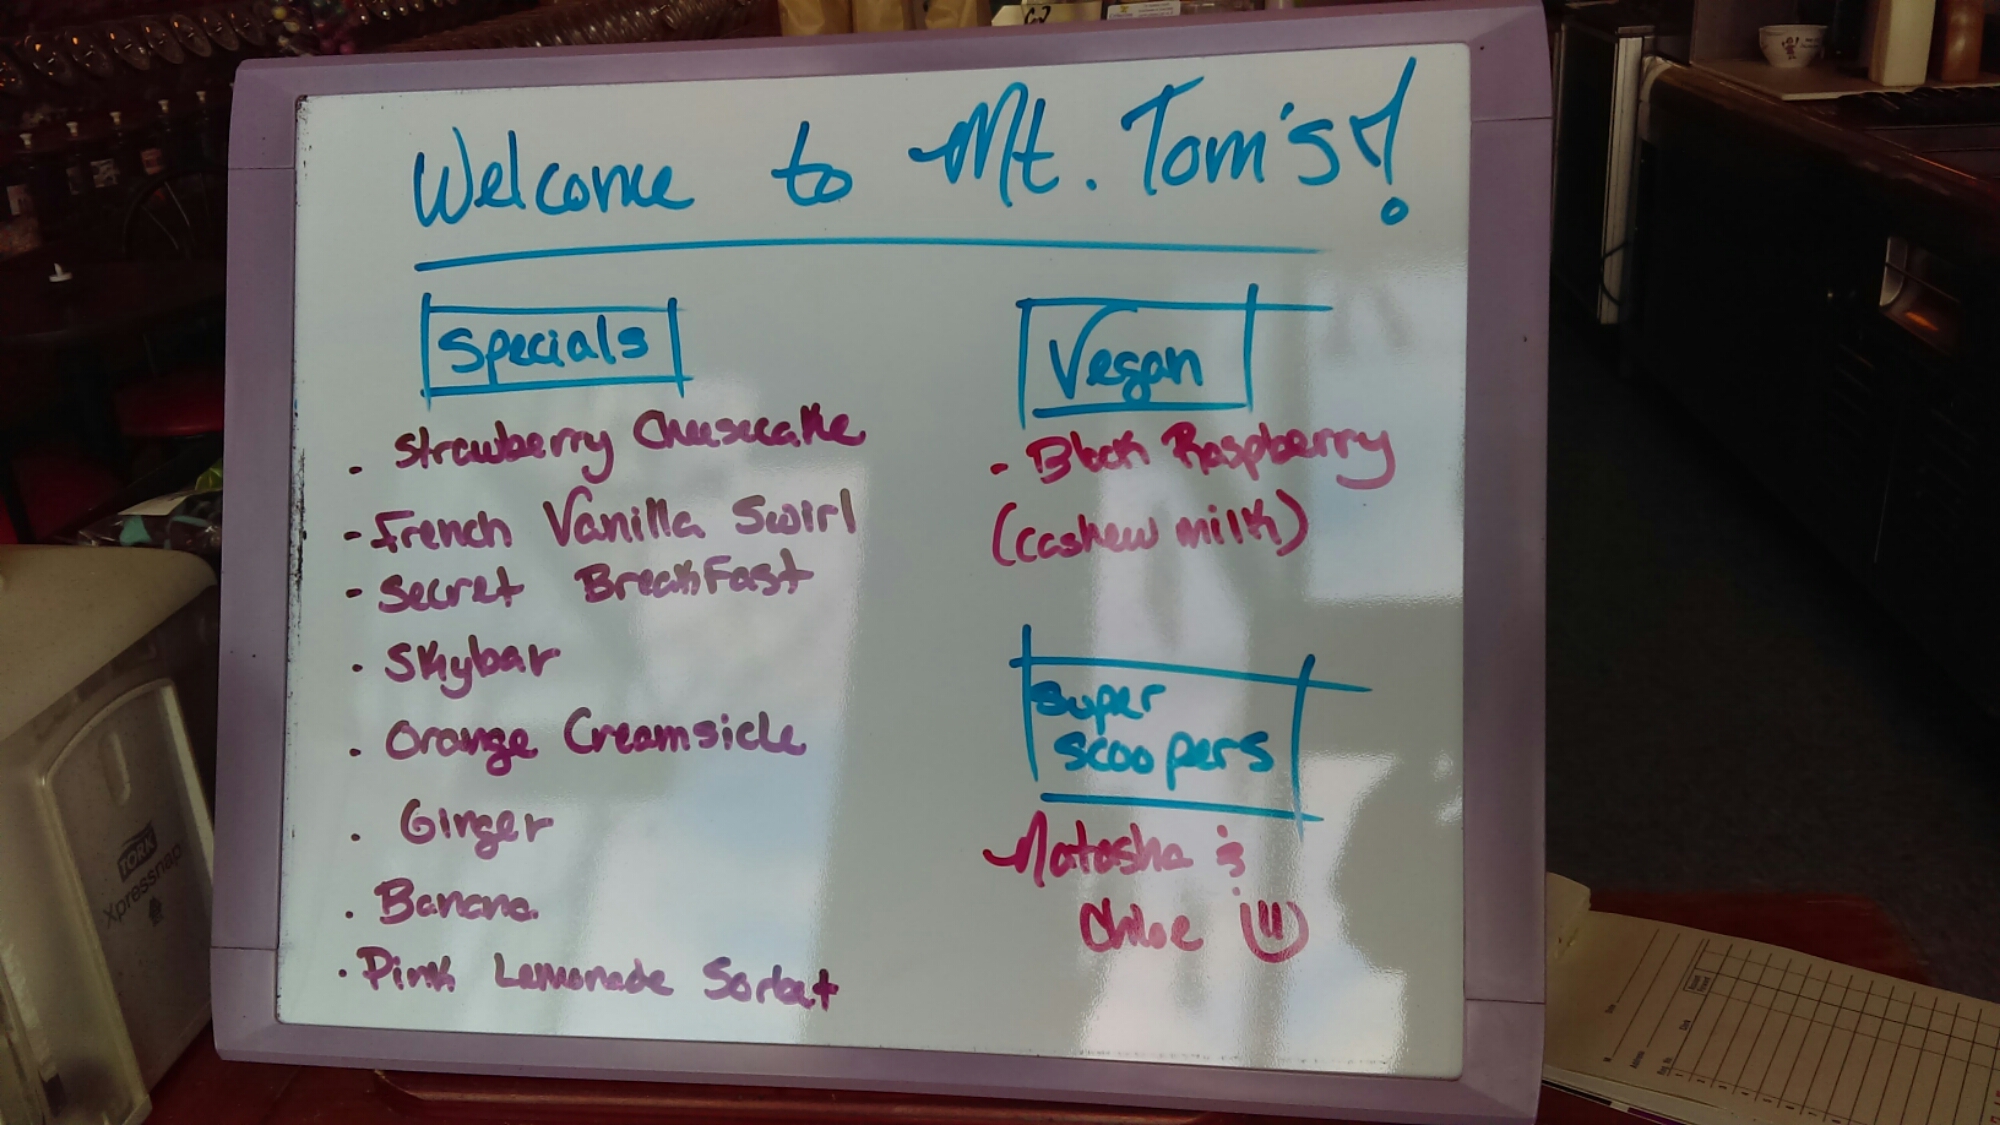 Welcome to Mt. Tom's!
Specials
· Strawberry Cheesecake
- French Vanilla Swirl
- Secret Breakfast
· Skybar
· Orange Creamsicle
· Ginger
· Banana
· Pink Lemonade Sorbet
Vegan
- Black Raspberry
(cashew milk)
Super
Scoopers
Natasha &
Chloe
TORK
Xpressnap